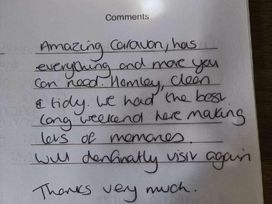 Comments
Amazing Caravan, has
everything and more you
can need. Homley, clean
& tidy. We had the best
long weekend here making
lots of memories.
Will denfinatly visit again
Thanks very much.